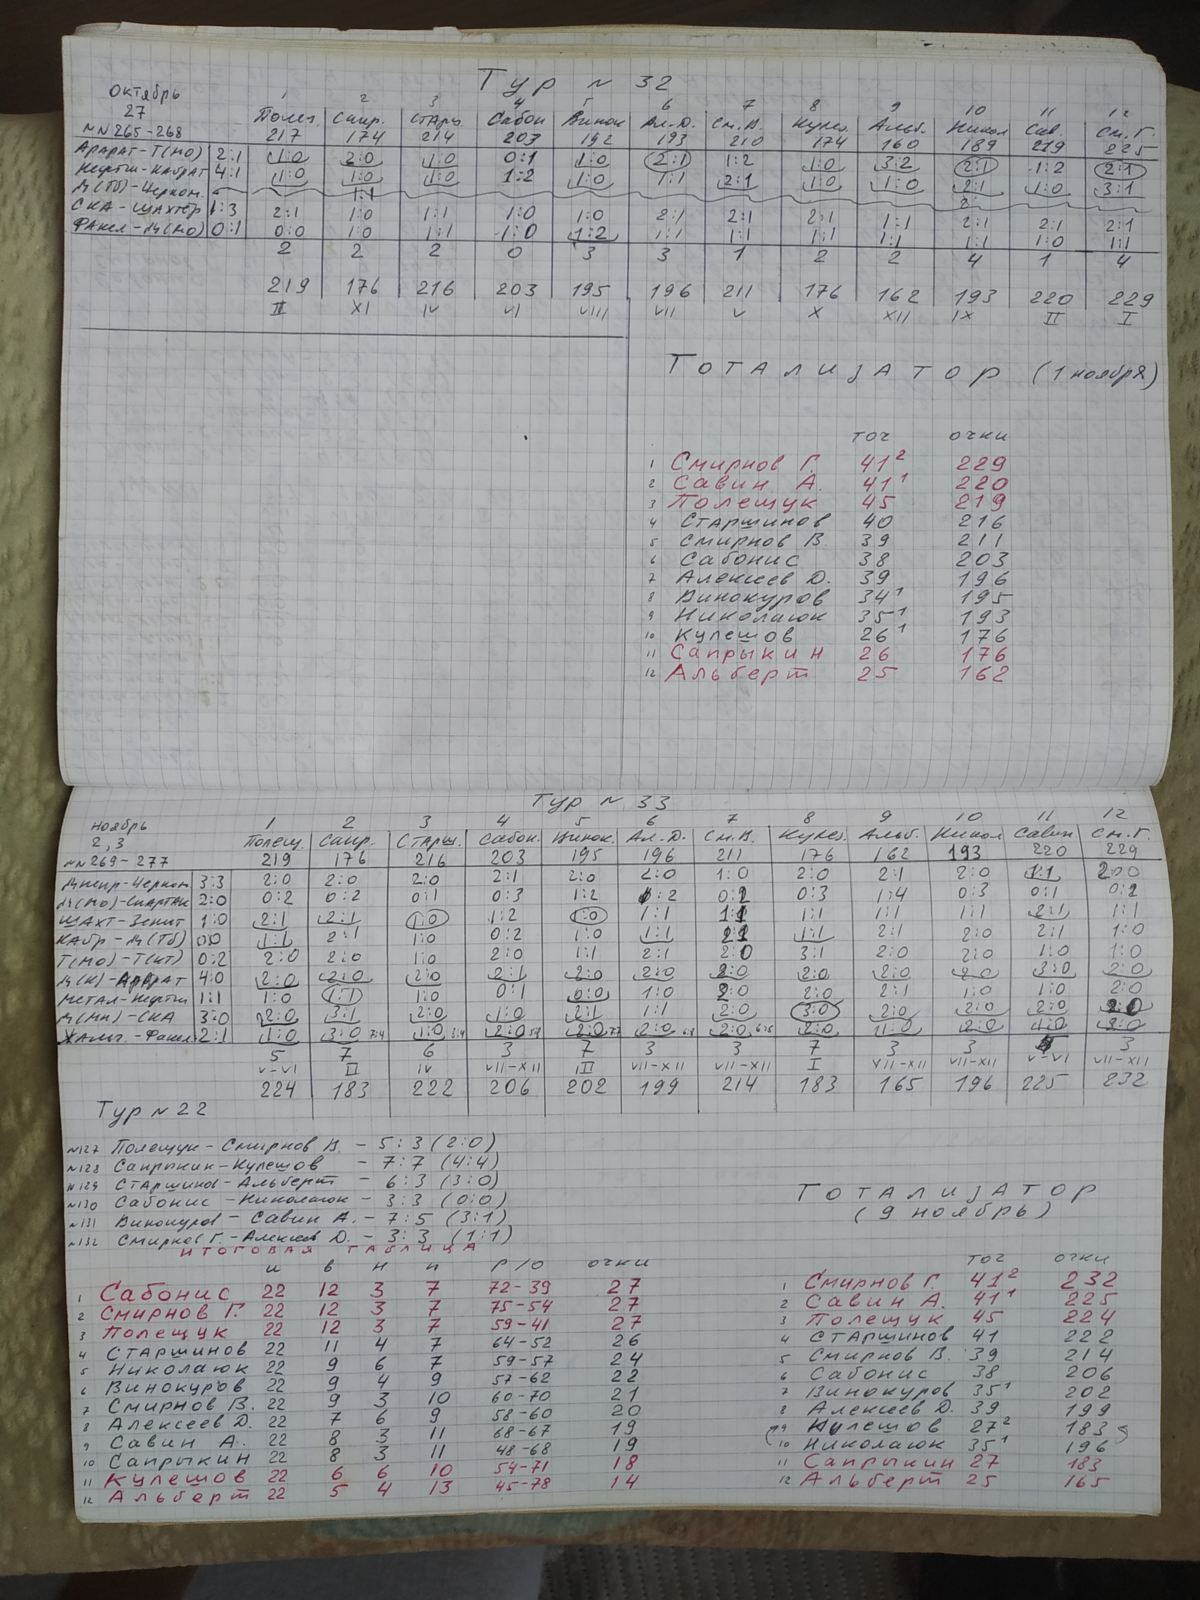 Тур № 32
Октябрь 1 2 3 4 5 6 7 8 9 10 11 12
27 Полещ. Сапр. Старш. Сабон Винок Ал.Д. См.В. Кулеш. Альб. Никол Сав. См.Г.
№№265-268 217 174 214 203 192 193 210 174 160 189 219 225
Арарат-Т(МО) 2:1 1:0 2:0 1:0 0:1 1:0 2:1 1:2 1:0 3:2 2:1 1:2 2:1
Нефтчи-Кайрат 4:1 1:0 1:0 1:0 1:2 1:0 1:1 2:1 1:0 1:0 2:1 1:0 3:1
Д(Тб)-Черном
СКА-Шахтёр 1:3 2:1 1:0 1:1 1:0 1:0 2:1 2:1 2:1 1:1 2:1 2:1 2:1
Факел-Д(МО) 0:1 0:0 1:0 1:1 1:0 1:2 1:1 1:1 1:1 1:1 1:1 1:0 1:1
2 2 2 0 3 3 1 2 2 4 1 4
219 176 216 203 195 196 211 176 162 193 220 229
XI IV VI VIII VII V X XII IX II I
Тотализатор (1 ноября)
точ очки
1 Смирнов Г. 41² 229
2 Савин А. 41¹ 220
3 Полещук 45 219
4 Старшинов 40 216
5 Смирнов В 39 211
6 Сабонис 38 203
7 Алексеев Д. 39 196
8 Винокуров 34¹ 195
9 Николаюк 35¹ 193
10 Кулешов 26¹ 176
11 Сапрыкин 26 176
12 Альберт 25 162
Тур № 33
Ноябрь 1 2 3 4 5 6 7 8 9 10 11 12
2,3 Полещ Сапр. Старш. Сабон. Винок. Ал.Д. См.В. Кулеш. Альб. Никол Савин См.Г.
№№269-277 219 176 216 203 195 196 211 176 162 193 220 229
Днепр-Черном 3:3 2:0 2:0 2:0 2:1 2:0 2:0 1:0 2:0 2:1 2:0 1:1 2:0
Д(МО)-Спартак 2:0 0:2 0:2 0:1 0:3 1:2 :2 0:2 0:3 1:4 0:3 0:1 0:2
Шахт-Зенит 1:0 2:1 2:1 1:0 1:2 1:0 1:1 1:1 1:1 1:1 1:1 2:1 1:1
Кайр-Д(Тб) 0:0 1:1 2:1 1:0 0:2 1:0 1:1 2:1 1:1 2:1 2:0 2:1 1:0
Т(МО)-Т(КТ) 0:2 2:0 2:0 1:0 2:0 1:1 2:1 2:0 3:1 2:0 2:0 1:0 1:0
Д(К)-Арарат 4:0 2:0 2:0 2:0 2:1 2:0 2:0 2:0 2:0 2:0 2:0 3:0 2:0
Метал-Нефтчи 1:1 1:0 1:1 1:0 0:1 0:0 1:0 2:0 2:0 2:1 1:0 1:0 2:0
Д(Мн)-СКА 3:0 2:0 3:1 2:0 1:0 2:1 1:1 2:0 3:0 2:0 2:0 2:0 2:0
Жальг.-Факел 2:1 1:0 3:0 1:0 2:0 2:0 2:0 2:0 2:0 1:0 2:0 2:0
5 7 6 3 7 3 3 7 3 3 5 3
V-VI II IV VII-XII III VII-XII VII-XII I VII-XII VII-XII V-VI VII-XII
224 183 222 206 202 199 214 183 165 196 225 232
Тур №22
№127 Полещук-Смирнов В. - 5:3 (2:0)
№128 Сапрыкин-Кулешов - 7:7 (4:4)
№129 Старшинов-Альберт - 6:3 (3:0)
№130 Сабонис-Николаюк - 3:3 (0:0)
№131 Винокуров-Савин А. - 7:5 (3:1)
№132 Смирнов Г.-Алексеев Д. - 3:3 (1:1)
Итоговая таблица
и в н п р/о очки
1 Сабонис 22 12 3 7 72-39 27
2 Смирнов Г. 22 12 3 7 75-54 27
3 Полещук 22 12 3 7 59-41 27
4 Старшинов 22 11 4 7 64-52 26
5 Николаюк 22 9 6 7 59-57 24
6 Винокуров 22 9 4 9 57-62 22
7 Смирнов В. 22 9 3 10 60-70 21
8 Алексеев Д. 22 7 6 9 58-60 20
9 Савин А. 22 8 3 11 68-67 19
10 Сапрыкин 22 8 3 11 48-68 19
11 Кулешов 22 6 6 10 54-71 18
12 Альберт 22 5 4 13 45-78 14
Тотализатор
(9 ноябрь)
точ очки
1 Смирнов Г. 41² 232
2 Савин А. 41¹ 225
3 Полещук 45 224
4 Старшинов 41 222
5 Смирнов В. 39 214
6 Сабонис 38 206
7 Винокуров 35¹ 202
8 Алексеев Д. 39 199
9 Кулешов 27² 183
10 Николаюк 35¹ 196
11 Сапрыкин 27 183
12 Альберт 25 165